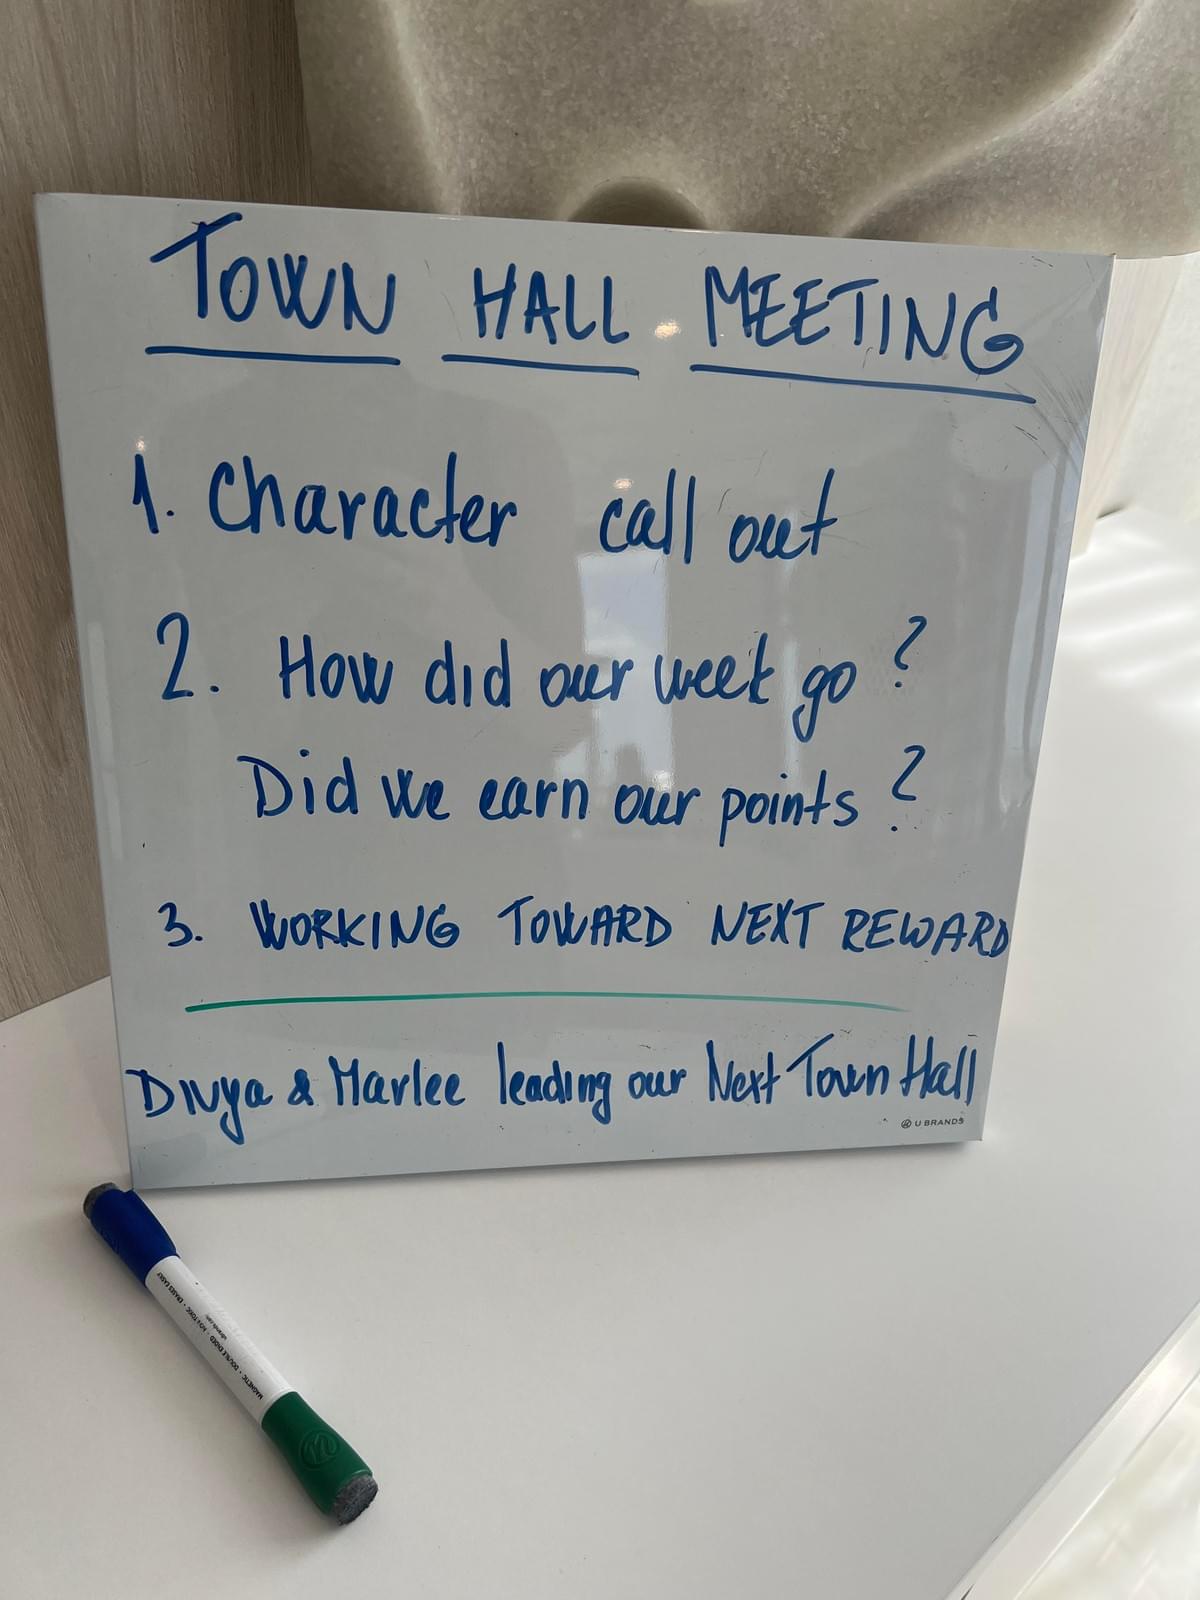 TOWN HALL MEETING
1. Character call out
2. How did our week go?
Did we earn our points?
3. WORKING TOWARD NEXT REWARD
Divya & Marlee leading our Next Town Hall
U BRANDS
MAGNETIC • DOUBLE ENDED • NON-TOXIC • ERASES EASILY